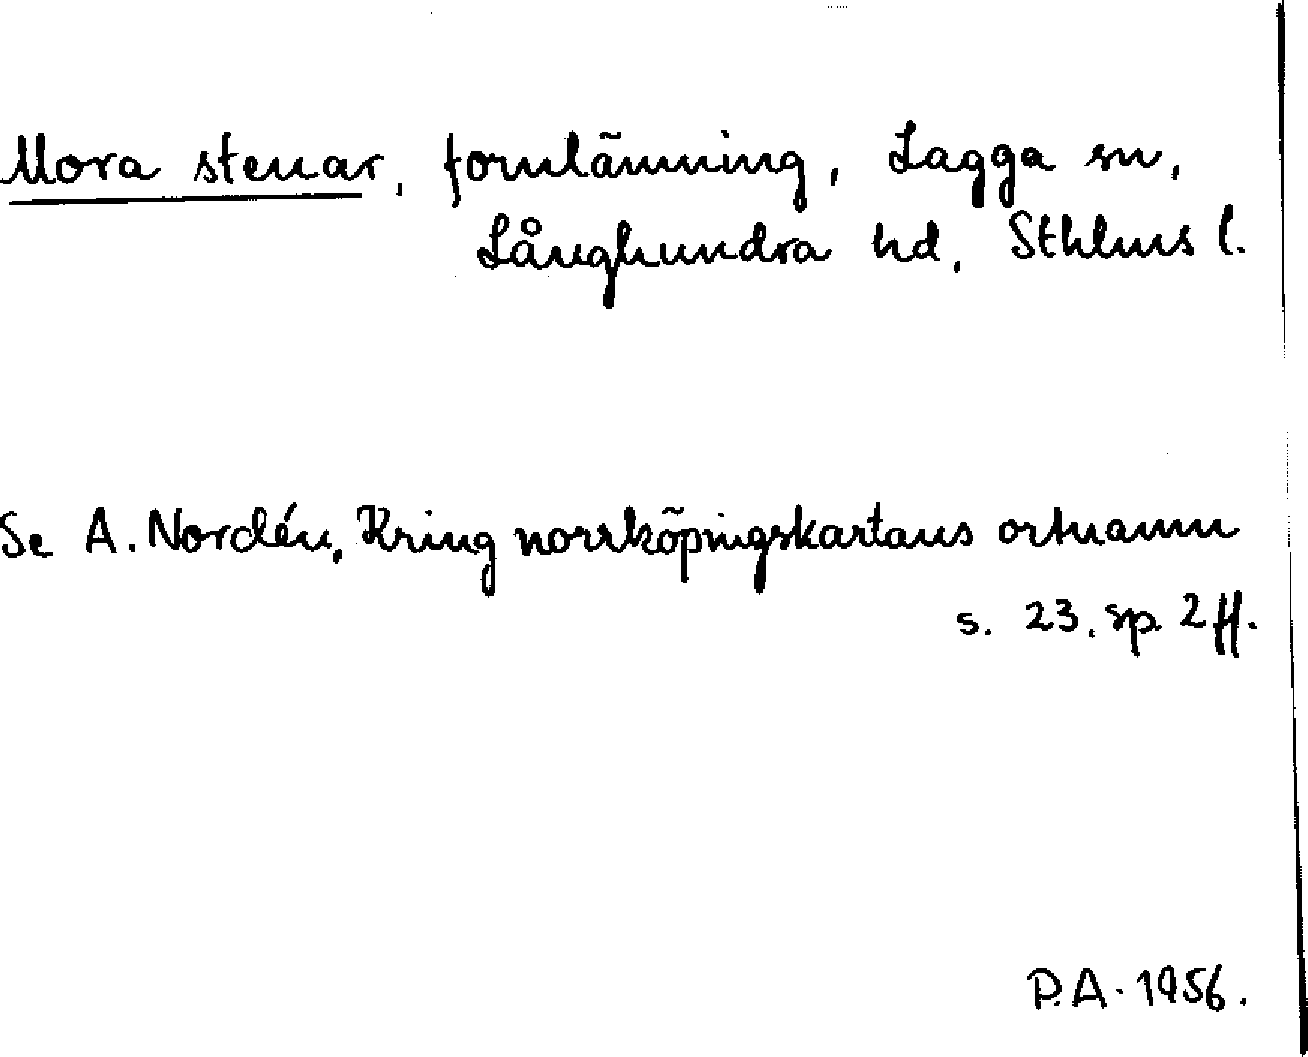 Mora stenar, fornlämning, Lagga sn,
Långhundra hd, Sthlms l.
Se A. Nordén, Kring norrköpingskartans ortnamn
s. 23, sp. 2 ff.
P.A. 1956.